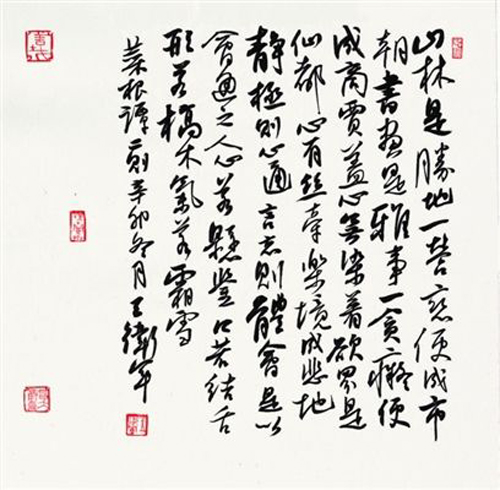 山林是勝地一营恋便成市
朝書畫是雅事一貪癡便
成商賈蓋心無染著欲界是
仙都心有丝牽樂境成悲地
静極則心通言忘則體會是以
會通之人心若懸鑒口若結舌
形若槁木氣若霜雪
菜根譚一則辛卯冬月王衛軍